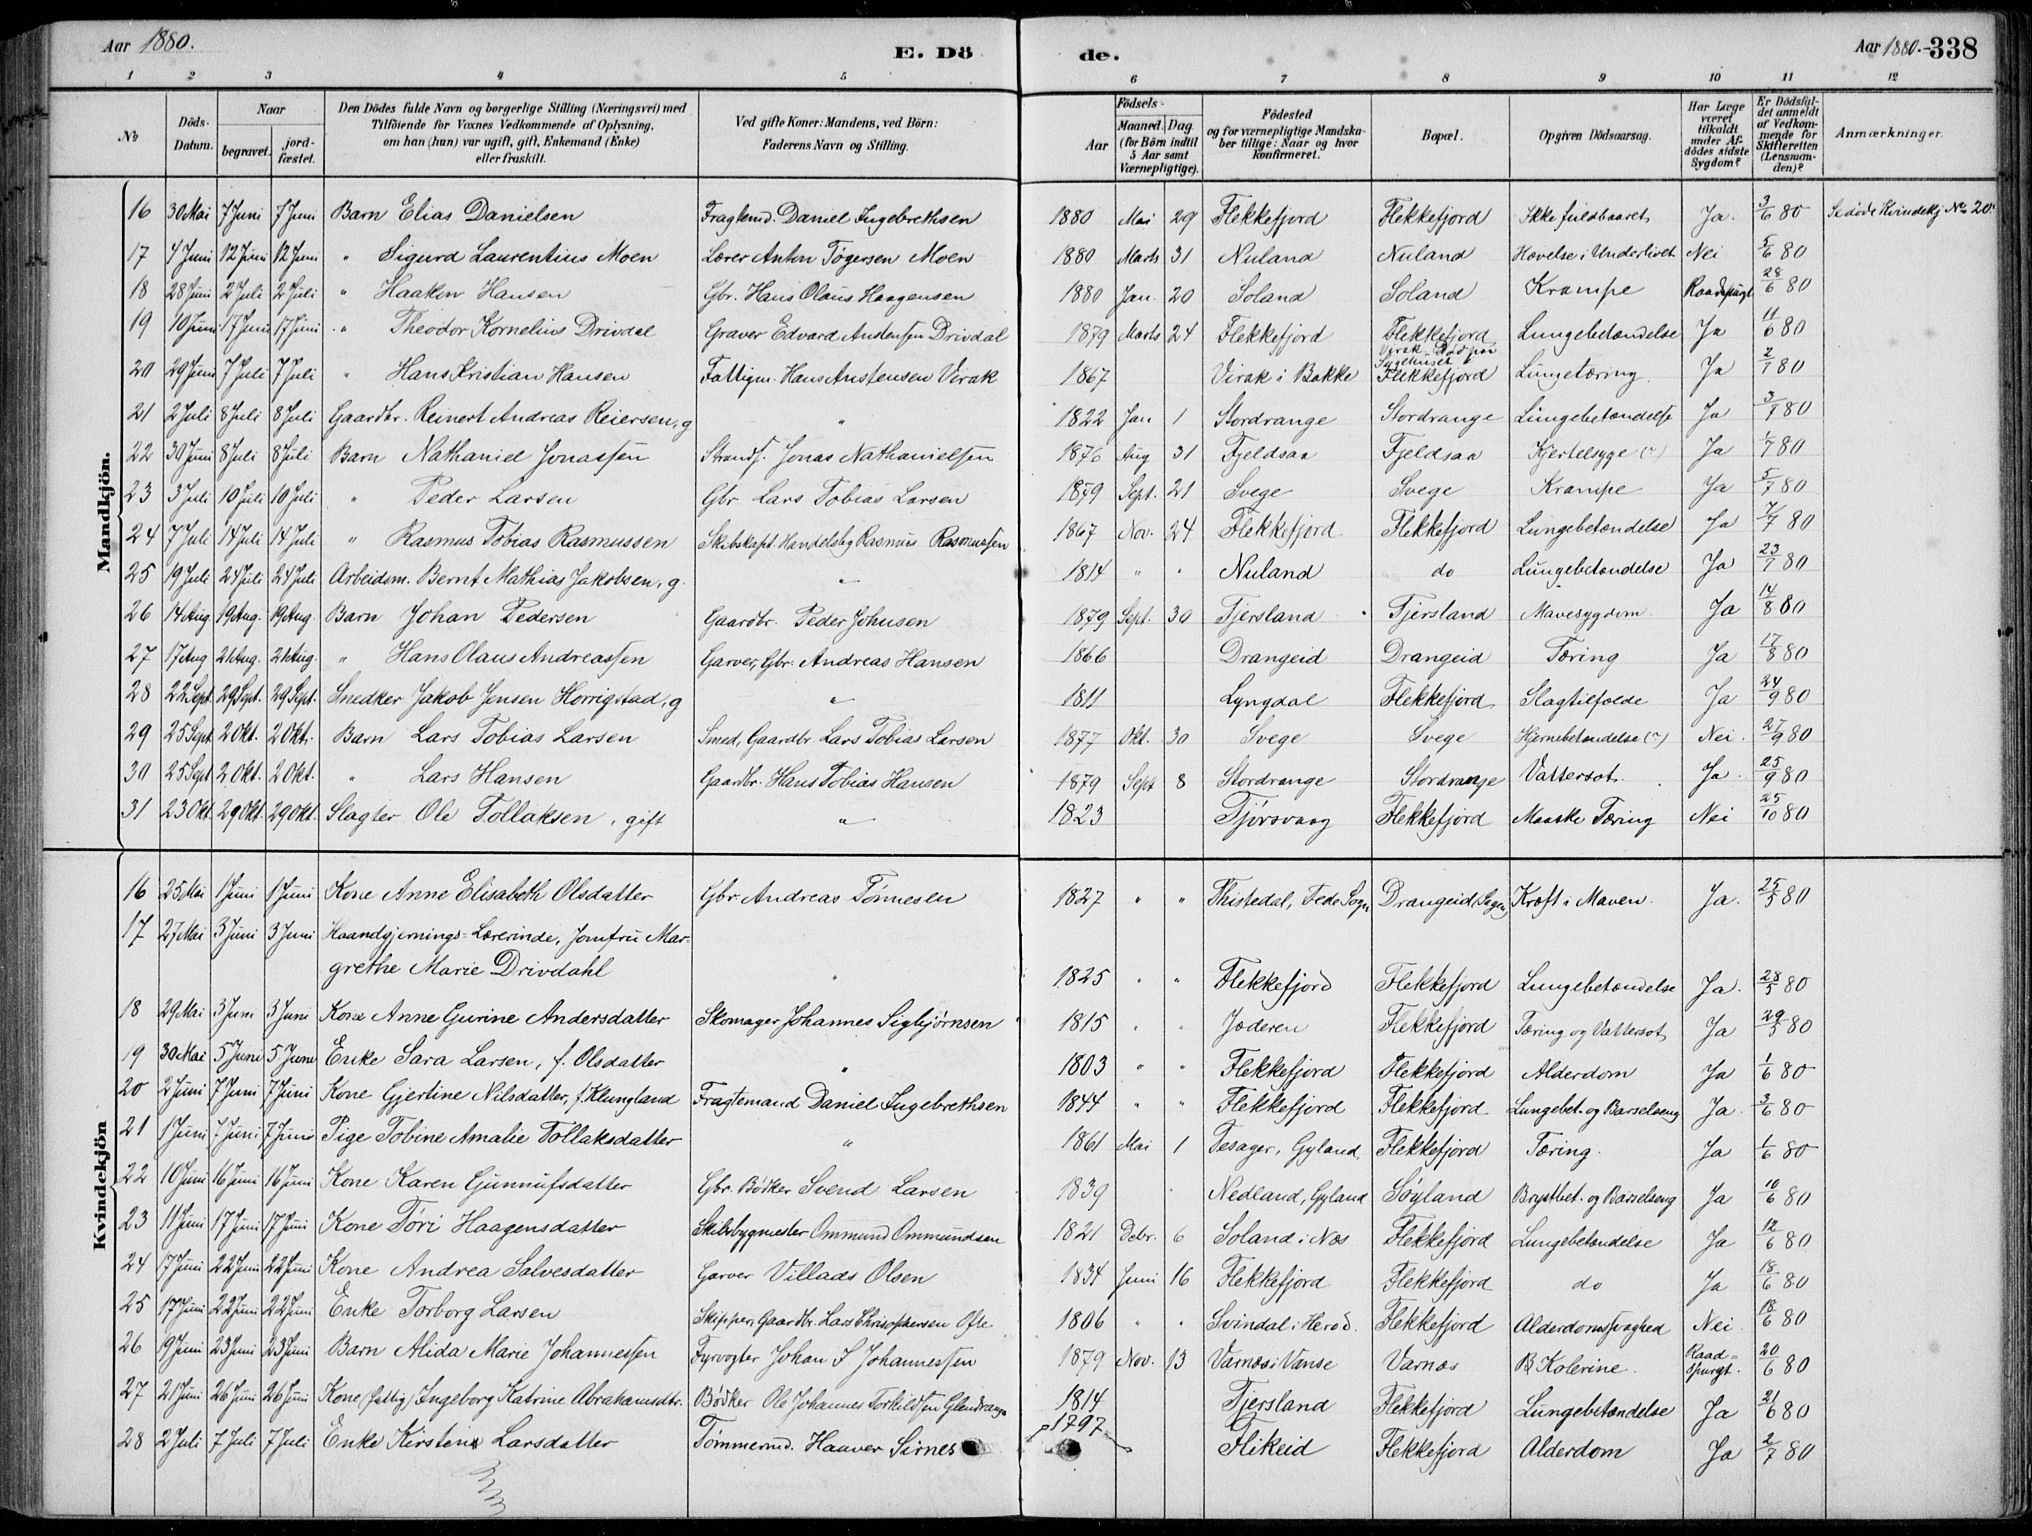 Aar 1880. E. Dö de. Aar 1880. 338
1 2 3 4 5 6 7 8 9 10 11 12
No Döds-Datum. Naar begravet. jordfæstet. Den Dödes fulde Navn og borgerlige Stilling (Næringsvei) med Tilföiende for Voxnes Vedkommende af Oplysning, om han (hun) var ugift, gift, Enkemand (Enke) eller fraskilt. Ved gifte Koner: Mandens, ved Börn: Faderens Navn og Stilling. Födsels- Aar Maaned. Dag (for Börn indtil 5 Aar samt Værnepligtige). Födested og for værnepligtige Mandskaber tillige: Naar og hvor konfirmeret. Bopæl. Opgiven Dödsaarsag. Har Læge været tilkaldt under Afdödes sidste Sygdom? Er Dödsfaldet anmeldt af Vedkommende for Skifteretten (Lensmanden)? Anmærkninger.
Mandkjön.
16 30 Mai 7 Juni 7 Juni Barn Elias Danielsen Fragtemd. Daniel Ingebrethsen 1880 Mai 29 Flekkefjord Flekkefjord Ikke fuldbaaret Ja. 3/6 80 Se döde Kvindekj No 20
17 4 Juni 12 Juni 12 Juni " Sigurd Laurentius Moen Lærer Anton Tøgersen Moen 1880 Marts 31 Nuland Nuland Hævelse i Underlivet Nei 5/6 80
18 28 Juni 2 Juli 2 Juli " Haakon Hansen Gbr. Hans Olaus Haagensen 1880 Jan. 20 Soland Soland Krampe Raadspurgt 28/6 80
19 10 Juni 17 Juni 17 Juni " Theodor Kornelius Drivdal Graver Edvard Austensen Drivdal 1879 Marts 24 Flekkefjord Flekkefjord Lungebetændelse Ja 11/6 80
20 29 Juni 7 Juli 7 Juli " Hans Kristian Hansen Fattigm. Hans Anstensen Virak 1867 Virak i Bakke Virak. Död paa Sygehuset i Flekkefjord Lungetæring. Ja 2/7 80
21 2 Juli 8 Juli 8 Juli Gaardbr. Reinert Andreas Reiersen, g " 1822 Jan 1 Stordrange Stordrange Lungebetændelse Ja 3/7 80
22 30 Juni 8 Juli 8 Juli Barn Nathaniel Jonassen Strands. Jonas Nathanielsen 1876 Aug 31 Fjeldsaa Fjeldsaa Kjertelsyge (?) Ja 1/7 80
23 3 Juli 10 Juli 10 Juli " Peder Larsen Gbr Lars Tobias Larsen 1879 Sept. 21 Svege Svege Krampe Ja 5/7 80
24 7 Juli 14 Juli 14 Juli " Rasmus Tobias Rasmussen Skibskapt. Handelsbg Rasmus Rasmussen 1867 Nov. 24 Flekkefjord Flekkefjord Lungebetændelse Ja 7/7 80
25 19 Juli 24 Juli 24 Juli Arbeidsm. Bernt Mathias Jakobsen, g. " 1814 " " Nuland do Lungebetændelse Ja 23/7 80
26 14 Aug 19 Aug. 19 Aug. Barn Johan Pedersen Gaardbr. Peder Johnsen 1879 Sept. 30 Tjersland Tjersland Mavesygdom Ja 14/8 80
27 17 Aug 21 Aug. 21 Aug. " Hans Olaus Andreassen Garver, Gbr. Andreas Hansen 1866 Drangeid Drangeid Tæring Ja 17/8 80
28 22 Sept 29 Sept. 29 Sept. Snedker Jakob Jensen Horrigstad, g " 1811 Lyngdal Flekkefjord Slagtilfælde Ja 24/9 80
29 25 Sept 2 Okt. 2 Okt. Barn Lars Tobias Larsen Smed, Gaardbr Lars Tobias Larsen 1877 Okt. 30 Svege Svege Hjernebetændelse (?) Nei. 27/9 80
30 25 Sept 2 Okt. 2 Okt. " Lars Hansen Gaardbr. Hans Tobias Hansen 1879 Sept 8 Stordrange Stordrange Vattersot. Ja. 25/9 80
31 23 Okt. 29 Okt. 29 Okt. Slagter Ole Tollaksen, gift " 1823 Tjørsvaag Flekkefjord Maaske Tæring Nei 25/10 80
Kvindekjön
16 25 Mai 1 Juni 1 Juni Kone Anne Elisabeth Olsdatter Gbr Andreas Tønnesen 1827 " " Thistedal, Fede Sogn Drangeid Kræft i Maven. Ja. 25/5 80
17 27 Mai 3 Juni 3 Juni Haandgjernings-Lærerinde, Jomfru Mar-
grethe Marie Drivdahl " 1825 " " Flekkefjord Flekkefjord Lungebetændelse Ja. 28/5 80
18 29 Mai 3 Juni 3 Juni Kone Anne Gurine Andersdatter Skomager Johannes Sigbjørnsen 1815 " Jæderen Flekkefjord Tæring og Vattersot Ja 29/5 80
19 30 Mai 5 Juni 5 Juni Enke Sara Larsen, f. Olsdatter " 1803 " " Flekkefjord Flekkefjord Alderdom Ja 1/6 80
20 2 Juni 7 Juni 7 Juni Kone Gjertine Nilsdatter, f. Klungland Fragtemand Daniel Ingebrethsen 1844 " " Flekkefjord Flekkefjord Lungebet. og Barselseng Ja. 3/6 80
21 1 Juni 7 Juni 7 Juni Pige Tobine Amalie Tollaksdatter " 1861 Mai 1 Tesager, Gyland Flekkefjord Tæring. Ja 1/6 80
22 10 Juni 16 Juni 16 Juni Kone Karen Gunnufsdatter Gbr. Bødker Svend Larsen 1839 Nedland, Gyland Søyland Brystbet. og Barselseng Ja 10/6 80
23 11 Juni 17 Juni 17 Juni Kone Tøri Haagensdatter Skibsbygmester Ommund Ommundsen 1821 Debr. 6 Soland i Næs Flekkefjord Lungebetændelse Ja 12/6 80
24 17 Juni 22 Juni 22 Juni Kone Andrea Salvesdatter Garver Villads Olsen 1834 Juni 16 Flekkefjord Flekkefjord do Ja 18/6 80
25 17 Juni 22 Juni 22 Juni Enke Torborg Larsen Skipper, Gaardbr. Lars Chrisophersen Ofte 1806 " " Svindal i Herod. Flekkefjord Alderdomssvaghed Nei. 18/6 80
26 19 Juni 23 Juni 23 Juni Barn Alida Marie Johannessen Fyrvogter Johan S Johannessen 1879 Nov. 13 Varnæs i Vanse Varnæs Kolerine. Raad-spurgt. 20/6 80
27 21 Juni 26 Juni 26 Juni Kone (fattig) Ingeborg Katrine Abrahamsdtr. Bødker Ole Johannes Torkildsen Glendrange 1814 Tjersland Flekkefjord Lungebetændelse Ja 21/6 80
28 2 Juli 7 Juli 7 Juli Enke Kirsten Larsdatter Tømmermd. Haaver Sirnes 1797 Flikeid Flekkefjord Alderdom Ja 2/7 80